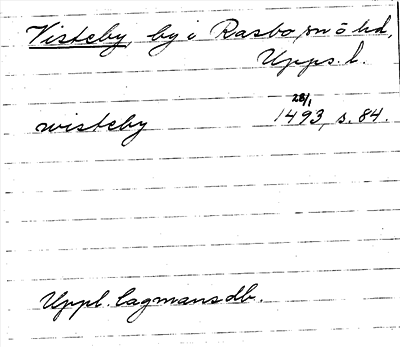 Visteby, by i Rasbo, sn o hd,
Upps. l.
wisteby 28/1 1493, s. 84.
Uppl. lagmansdb.